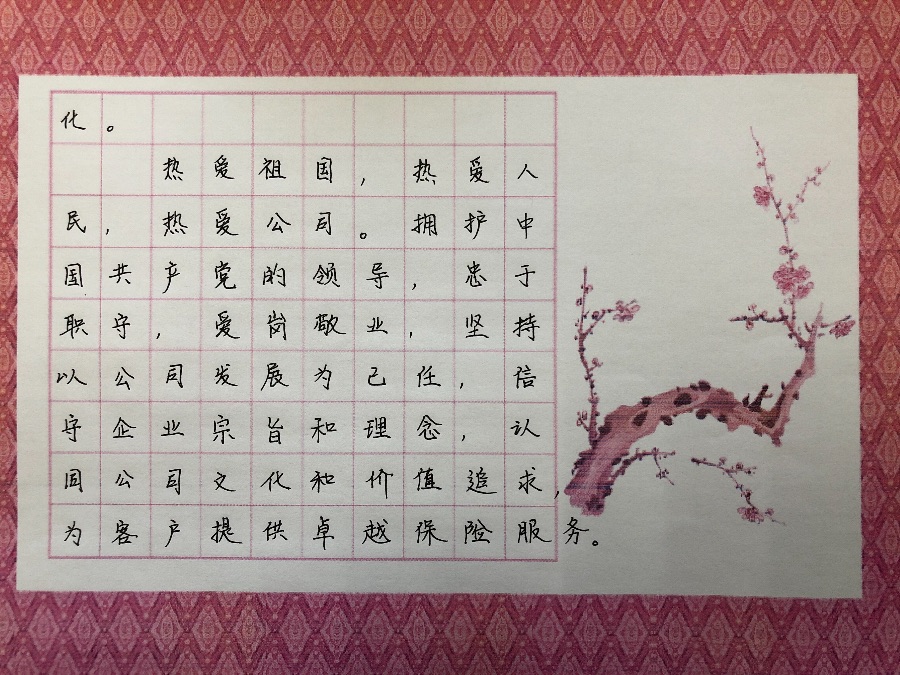 化。
热爱祖国，热爱人
民，热爱公司。拥护中
国共产党的领导，忠于
职守，爱岗敬业，坚持
以公司发展为己任，信
守企业宗旨和理念，认
同公司文化和价值追求，
为客户提供卓越保险服务。